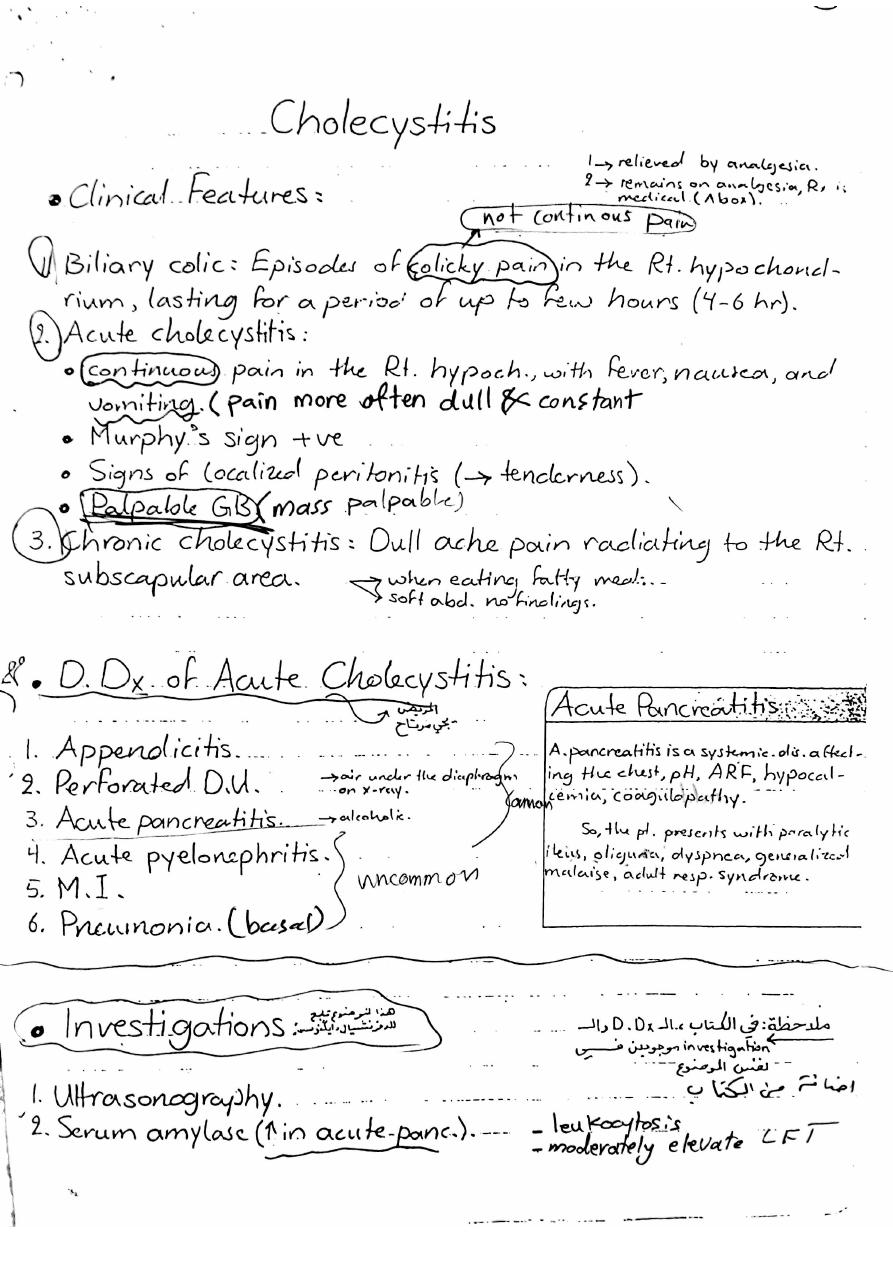 Cholecystitis
1→ relieved by analgesia.
2→ remains on analgesia, Rx is
medical (Abox).
• Clinical Features:
not continous pain
1) Biliary colic: Episodes of colicky pain in the Rt. hypochond-
rium, lasting for a period of up to few hours (4-6 hr).
2. Acute cholecystitis:
• continuous pain in the Rt. hypoch., with fever, nausea, and
vomiting. (pain more often dull & constant
• Murphy's sign +ve
• Signs of localized peritonitis (→ tenderness).
• Palpable GB (mass palpable)
3. Chronic cholecystitis: Dull ache pain radiating to the Rt.
subscapular area.
→ when eating fatty meal...
→ soft abd. no findings.
• D.Dx of Acute Cholecystitis:
المريض
1. Appendicitis.
2. Perforated D.U. → air under the diaphragm
on x-ray.
3. Acute pancreatitis. → alcoholic.
4. Acute pyelonephritis.
5. M.I.
6. Pneumonia. (basal)
uncommon
Acute Pancreatitis:
A. pancreatitis is a systemic. dis. affect-
ing the chest, pH, ARF, hypocal-
cemia, coagulopathy.
So, the pt. presents with paralytic
ileus, oliguria, dyspnea, generalized
malaise, adult resp. syndrome.
• Investigations:
هذا الموضوع تبع
ملاحظة: في الكتاب الـ D.Dx والـ
investigation موجودين في
نفس الموضوع
اضافة من الكتاب
1. Ultrasonography.
2. Serum amylase (↑ in acute panc.).
- leukocytosis
- moderately elevate LFT